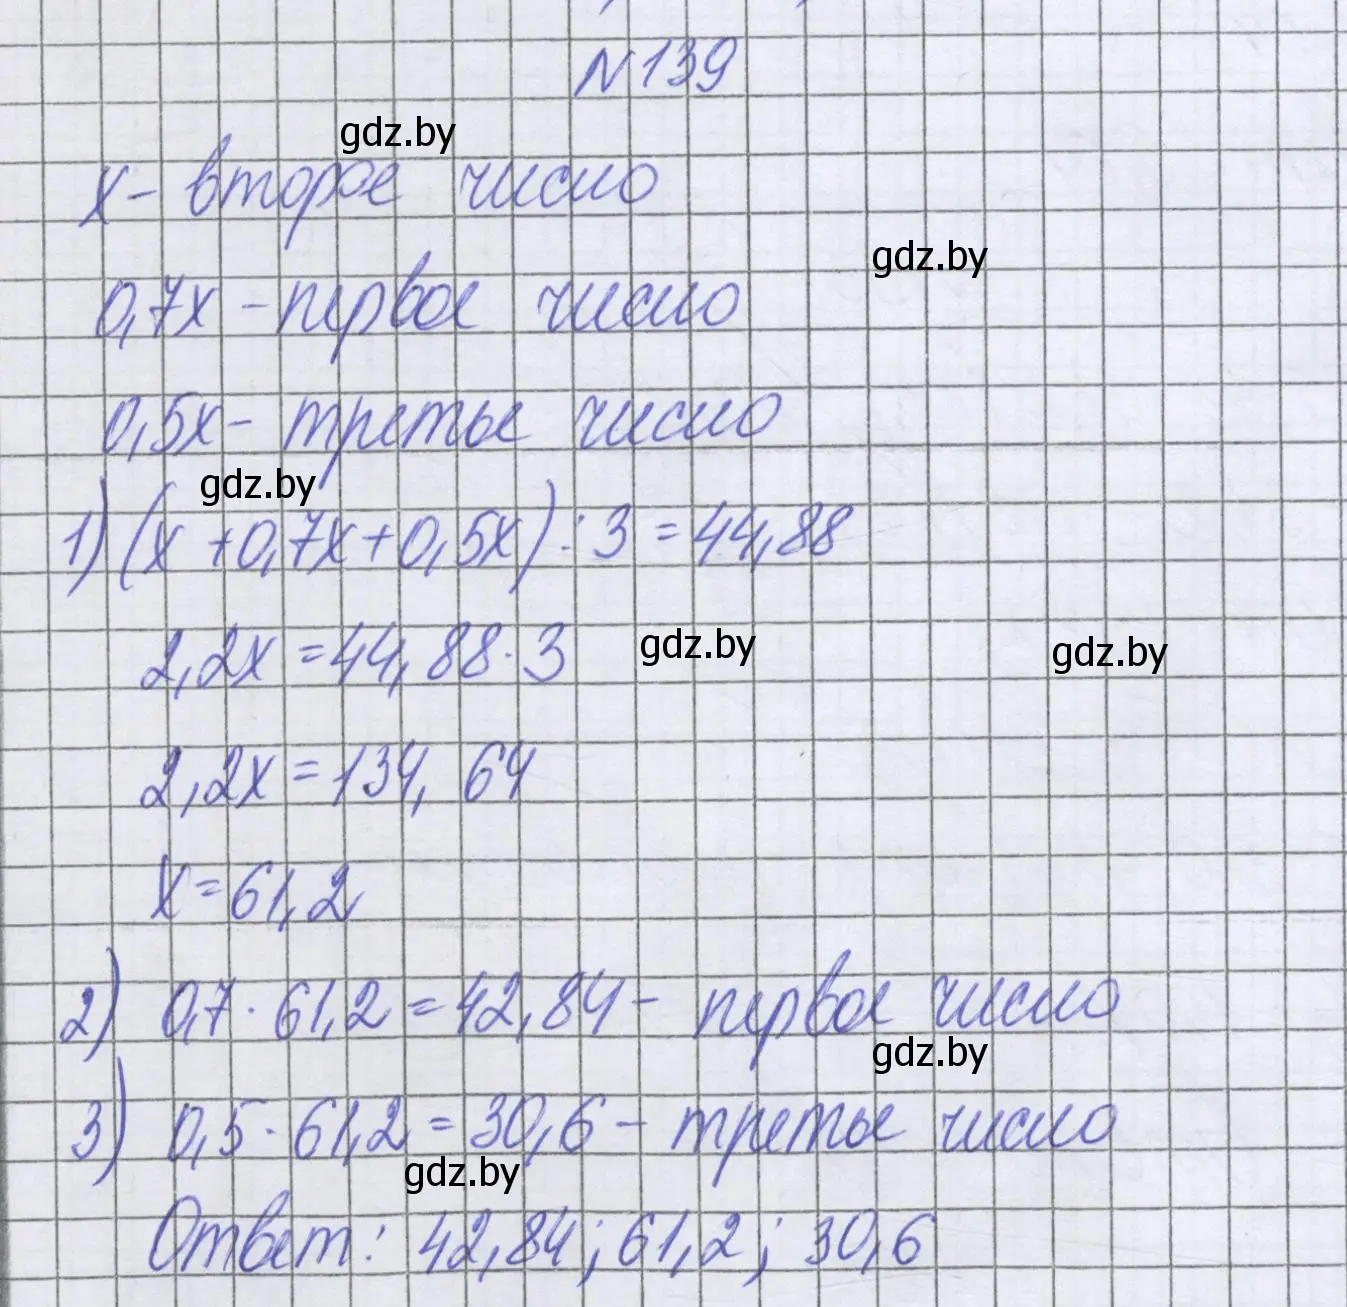 N139
gdz.by
x- второе число
gdz.by
0,7x - первое число
0,5x - третье число
gdz.by
1) (x + 0,7x + 0,5x) : 3 = 44,88
2,2x = 44,88 · 3
gdz.by
gdz.by
2,2x = 134,64
x = 61,2
2) 0,7 · 61,2 = 42,84 - первое число
gdz.by
3) 0,5 · 61,2 = 30,6 - третье число
gdz.by
Ответ: 42,84; 61,2; 30,6